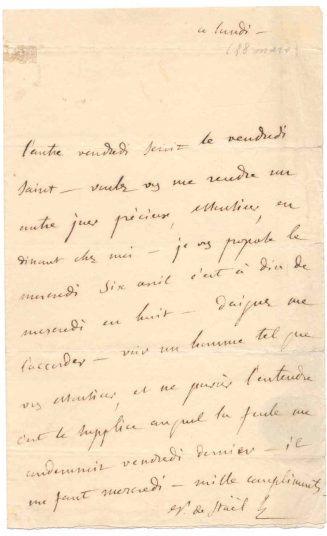 ce lundi —
(28 mars)
l'autre vendredi seroit le vendredi
saint — voulez vs me rendre un
autre jour précieux, Monsieur, en
dinant chez moi — je vs propose le
mercredi six avril c'est à dire de
mercredi en huit — daignez me
l'accorder — voir un homme tel que
vs Monsieur, et ne pas l'entendre
c'est le supplice auquel la foule me
condamnoit vendredi dernier — il
me faut mercredi — mille compliments
de Staël